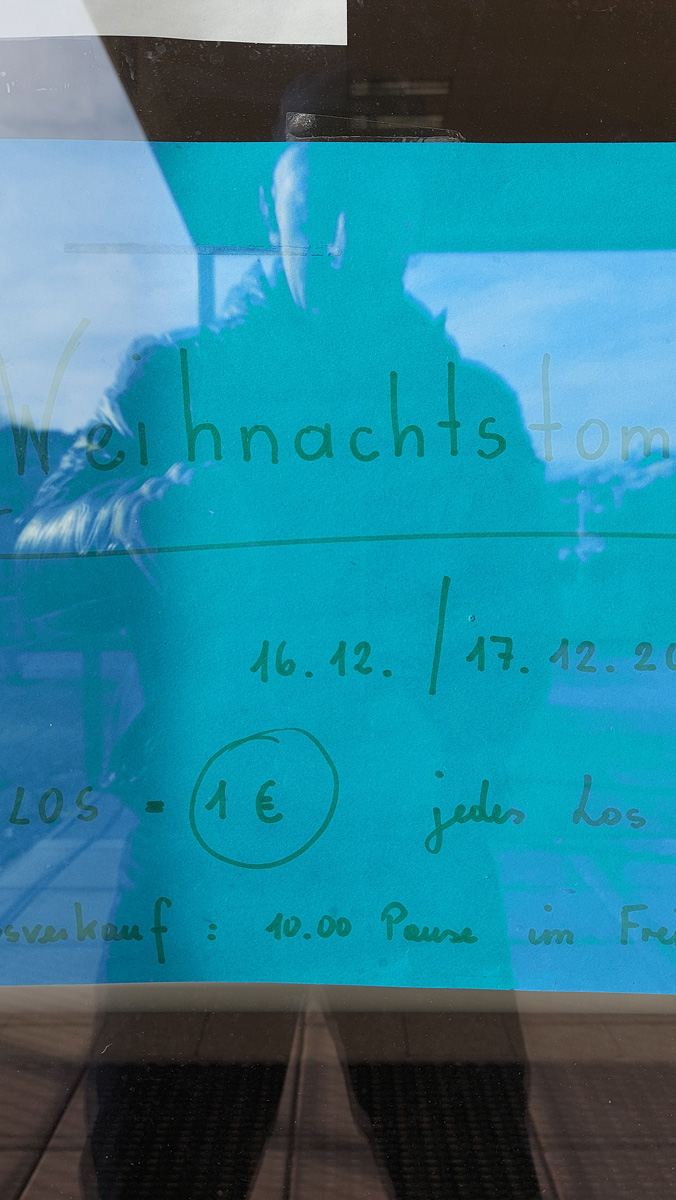 Weihnachtstom
16.12. / 17.12.20
LOS = 1 € jedes Los
sverkauf : 10.00 Pause im Frei